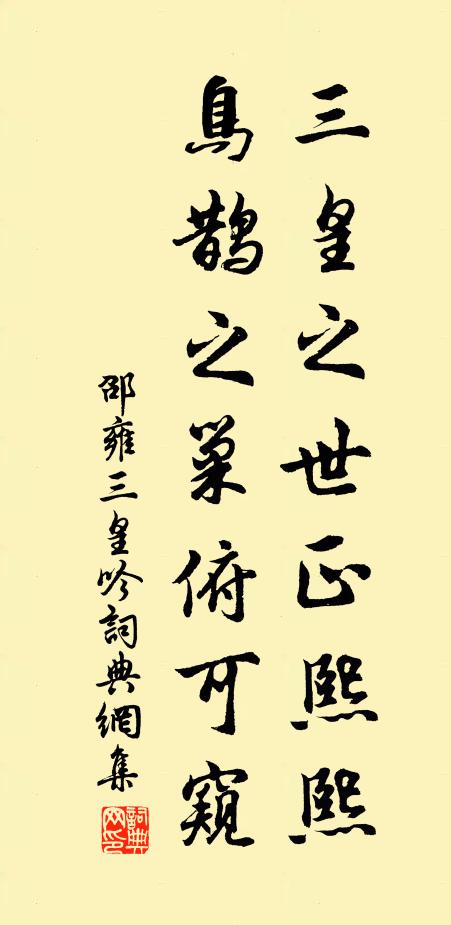 三皇之世正熙熙
烏鵲之巢俯可窺
邵雍三皇吟詞典網集
詞典網印